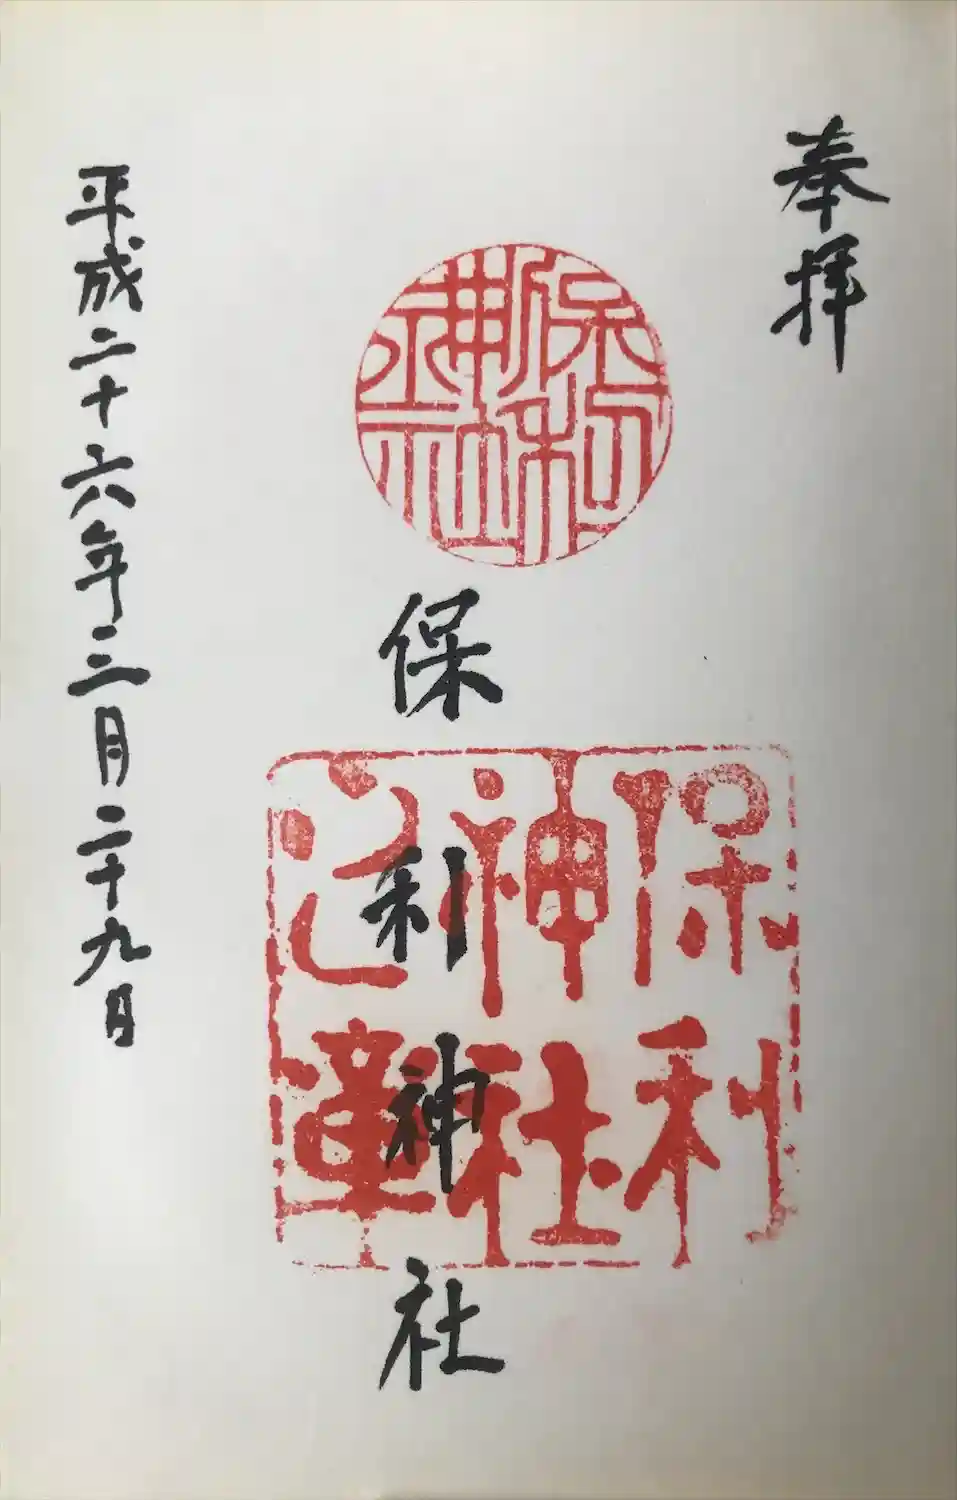 奉拝
保利神社
保利
神社
之章
平成二十六年三月二十九日